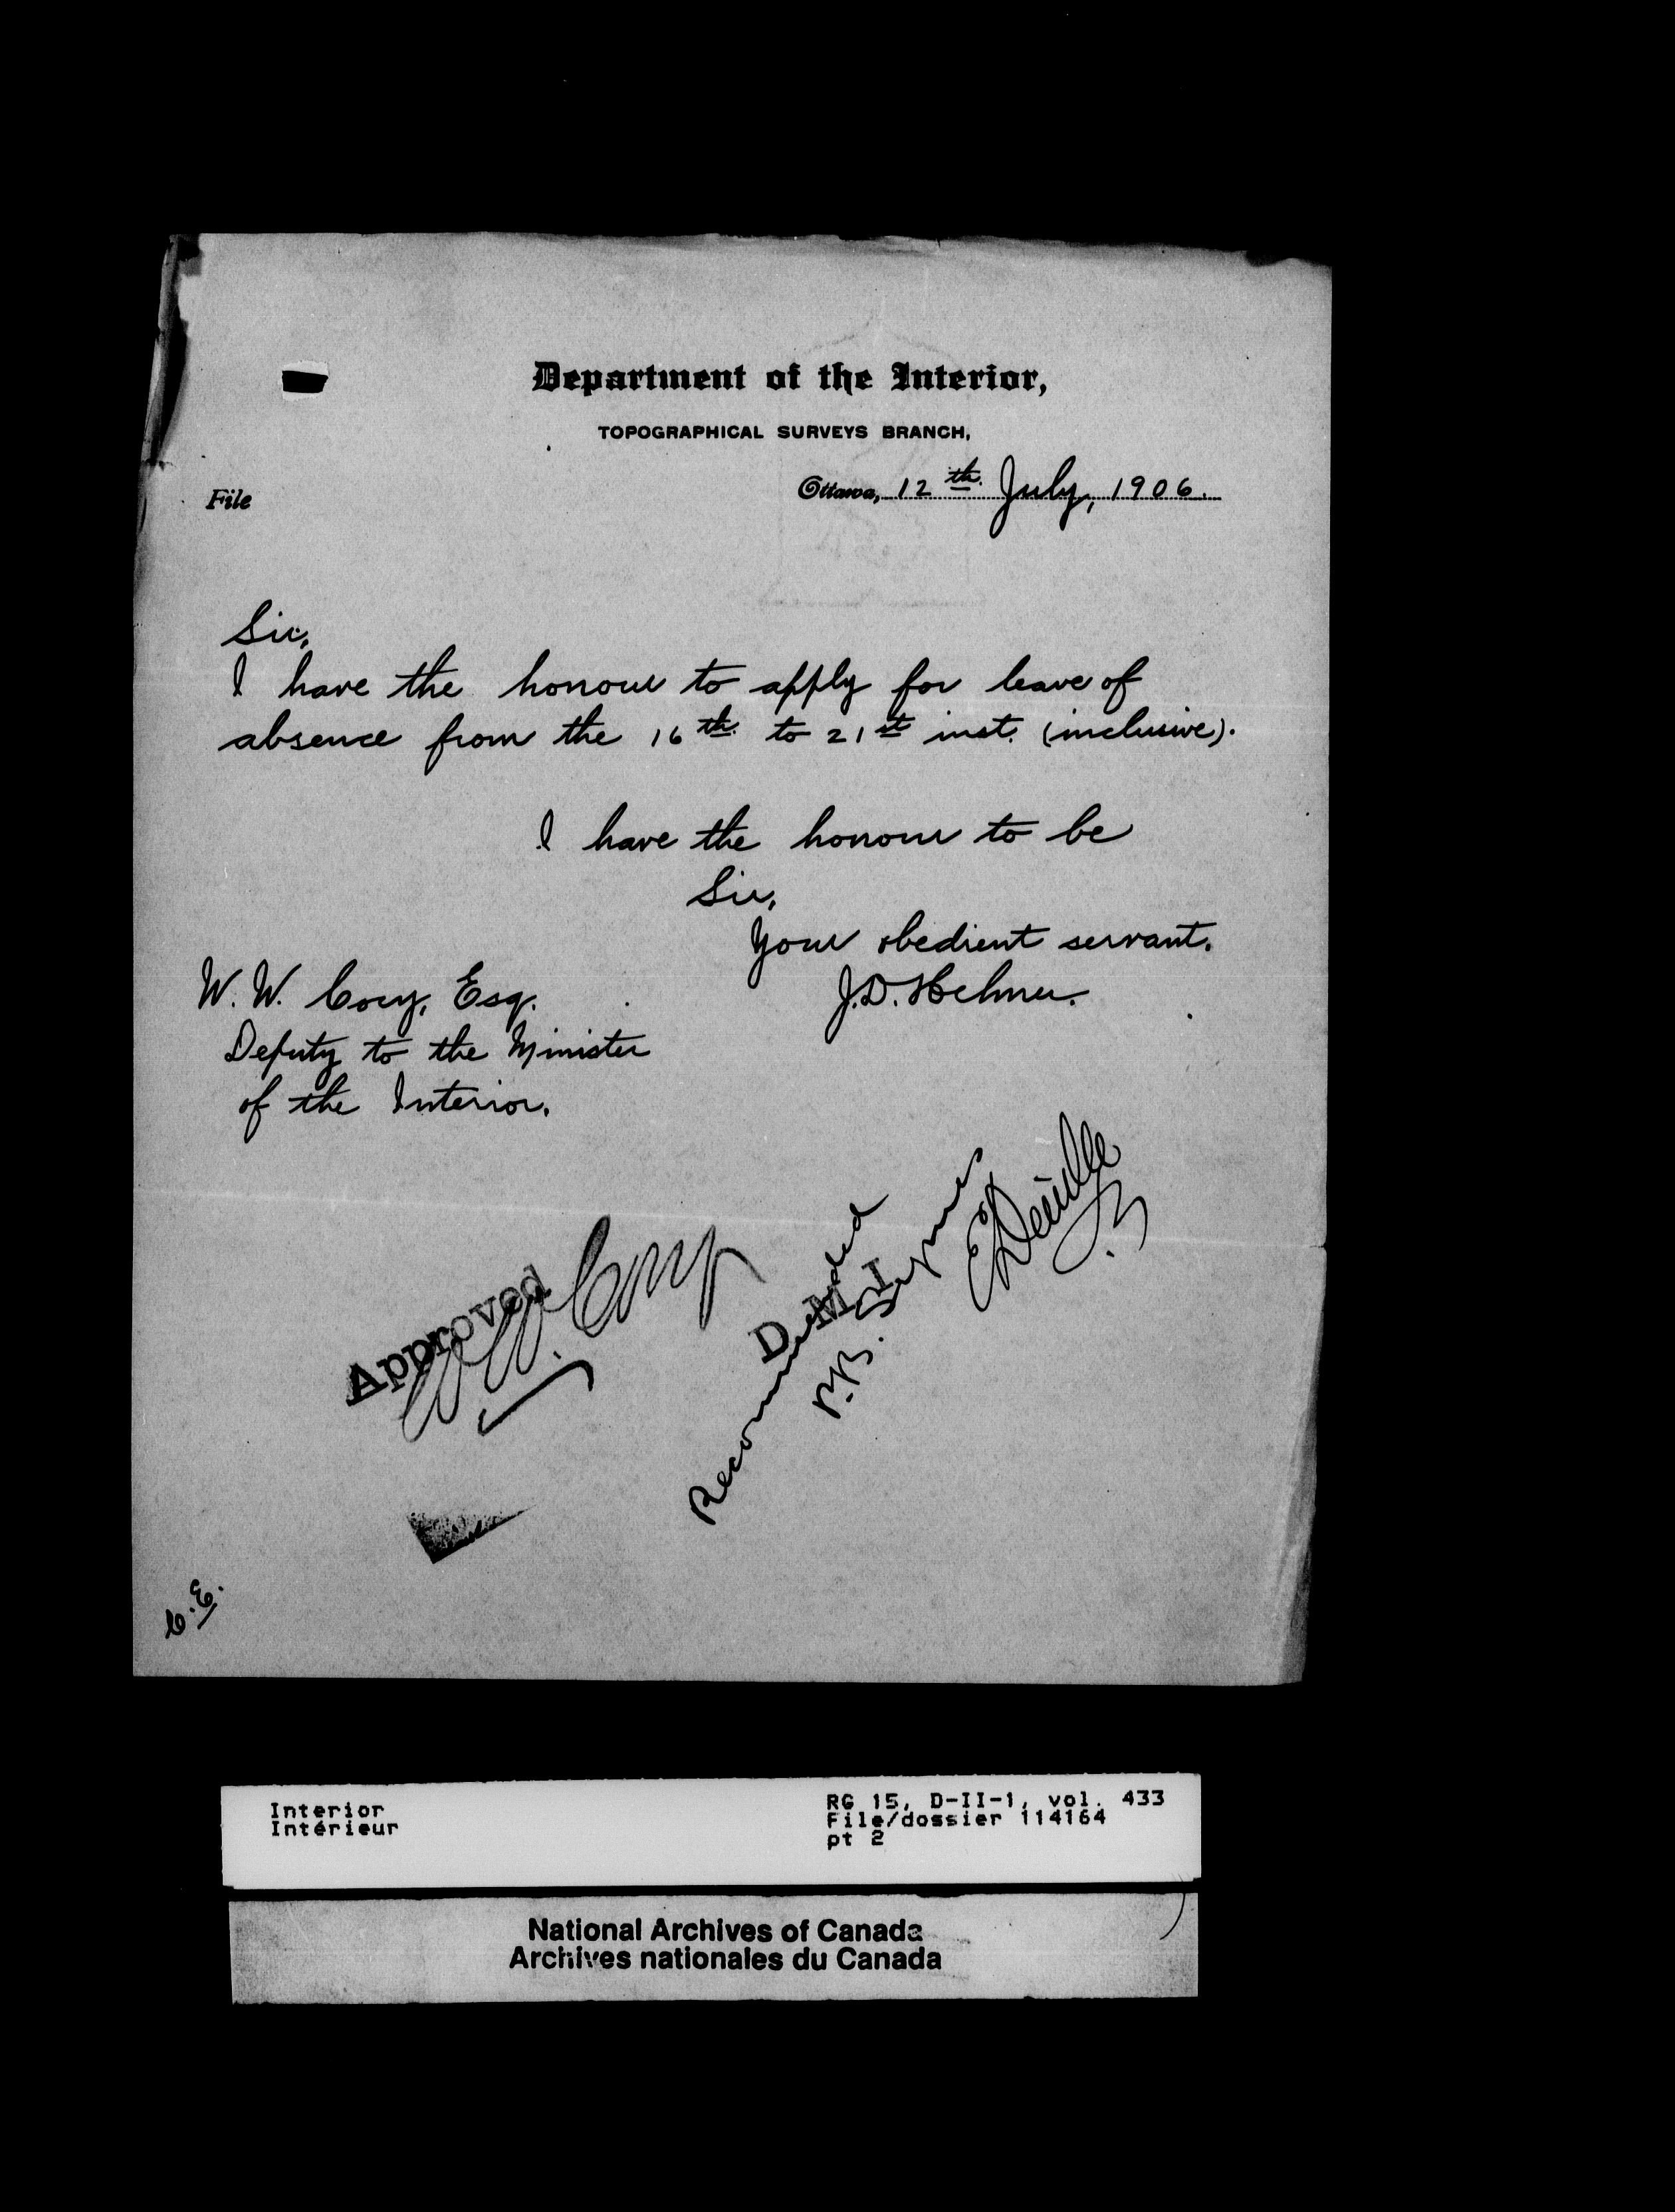 Department of the Interior,
TOPOGRAPHICAL SURVEYS BRANCH,
Ottawa, 12th. July, 1906.
File
Sir,
I have the honour to apply for leave of
absence from the 16th. to 21st inst. (inclusive).
I have the honour to be
Sir,
Your obedient servant.
J.D.
W. W. Cory, Esq.
Deputy to the Minister
of the Interior.
Approved
W W. Cory
D M I
Recommended
P.B. Symes
E Deville
C.E.
Interior
Intérieur
RG 15, D-II-1, vol. 433
File/dossier 114164
pt 2
National Archives of Canada
Archives nationales du Canada